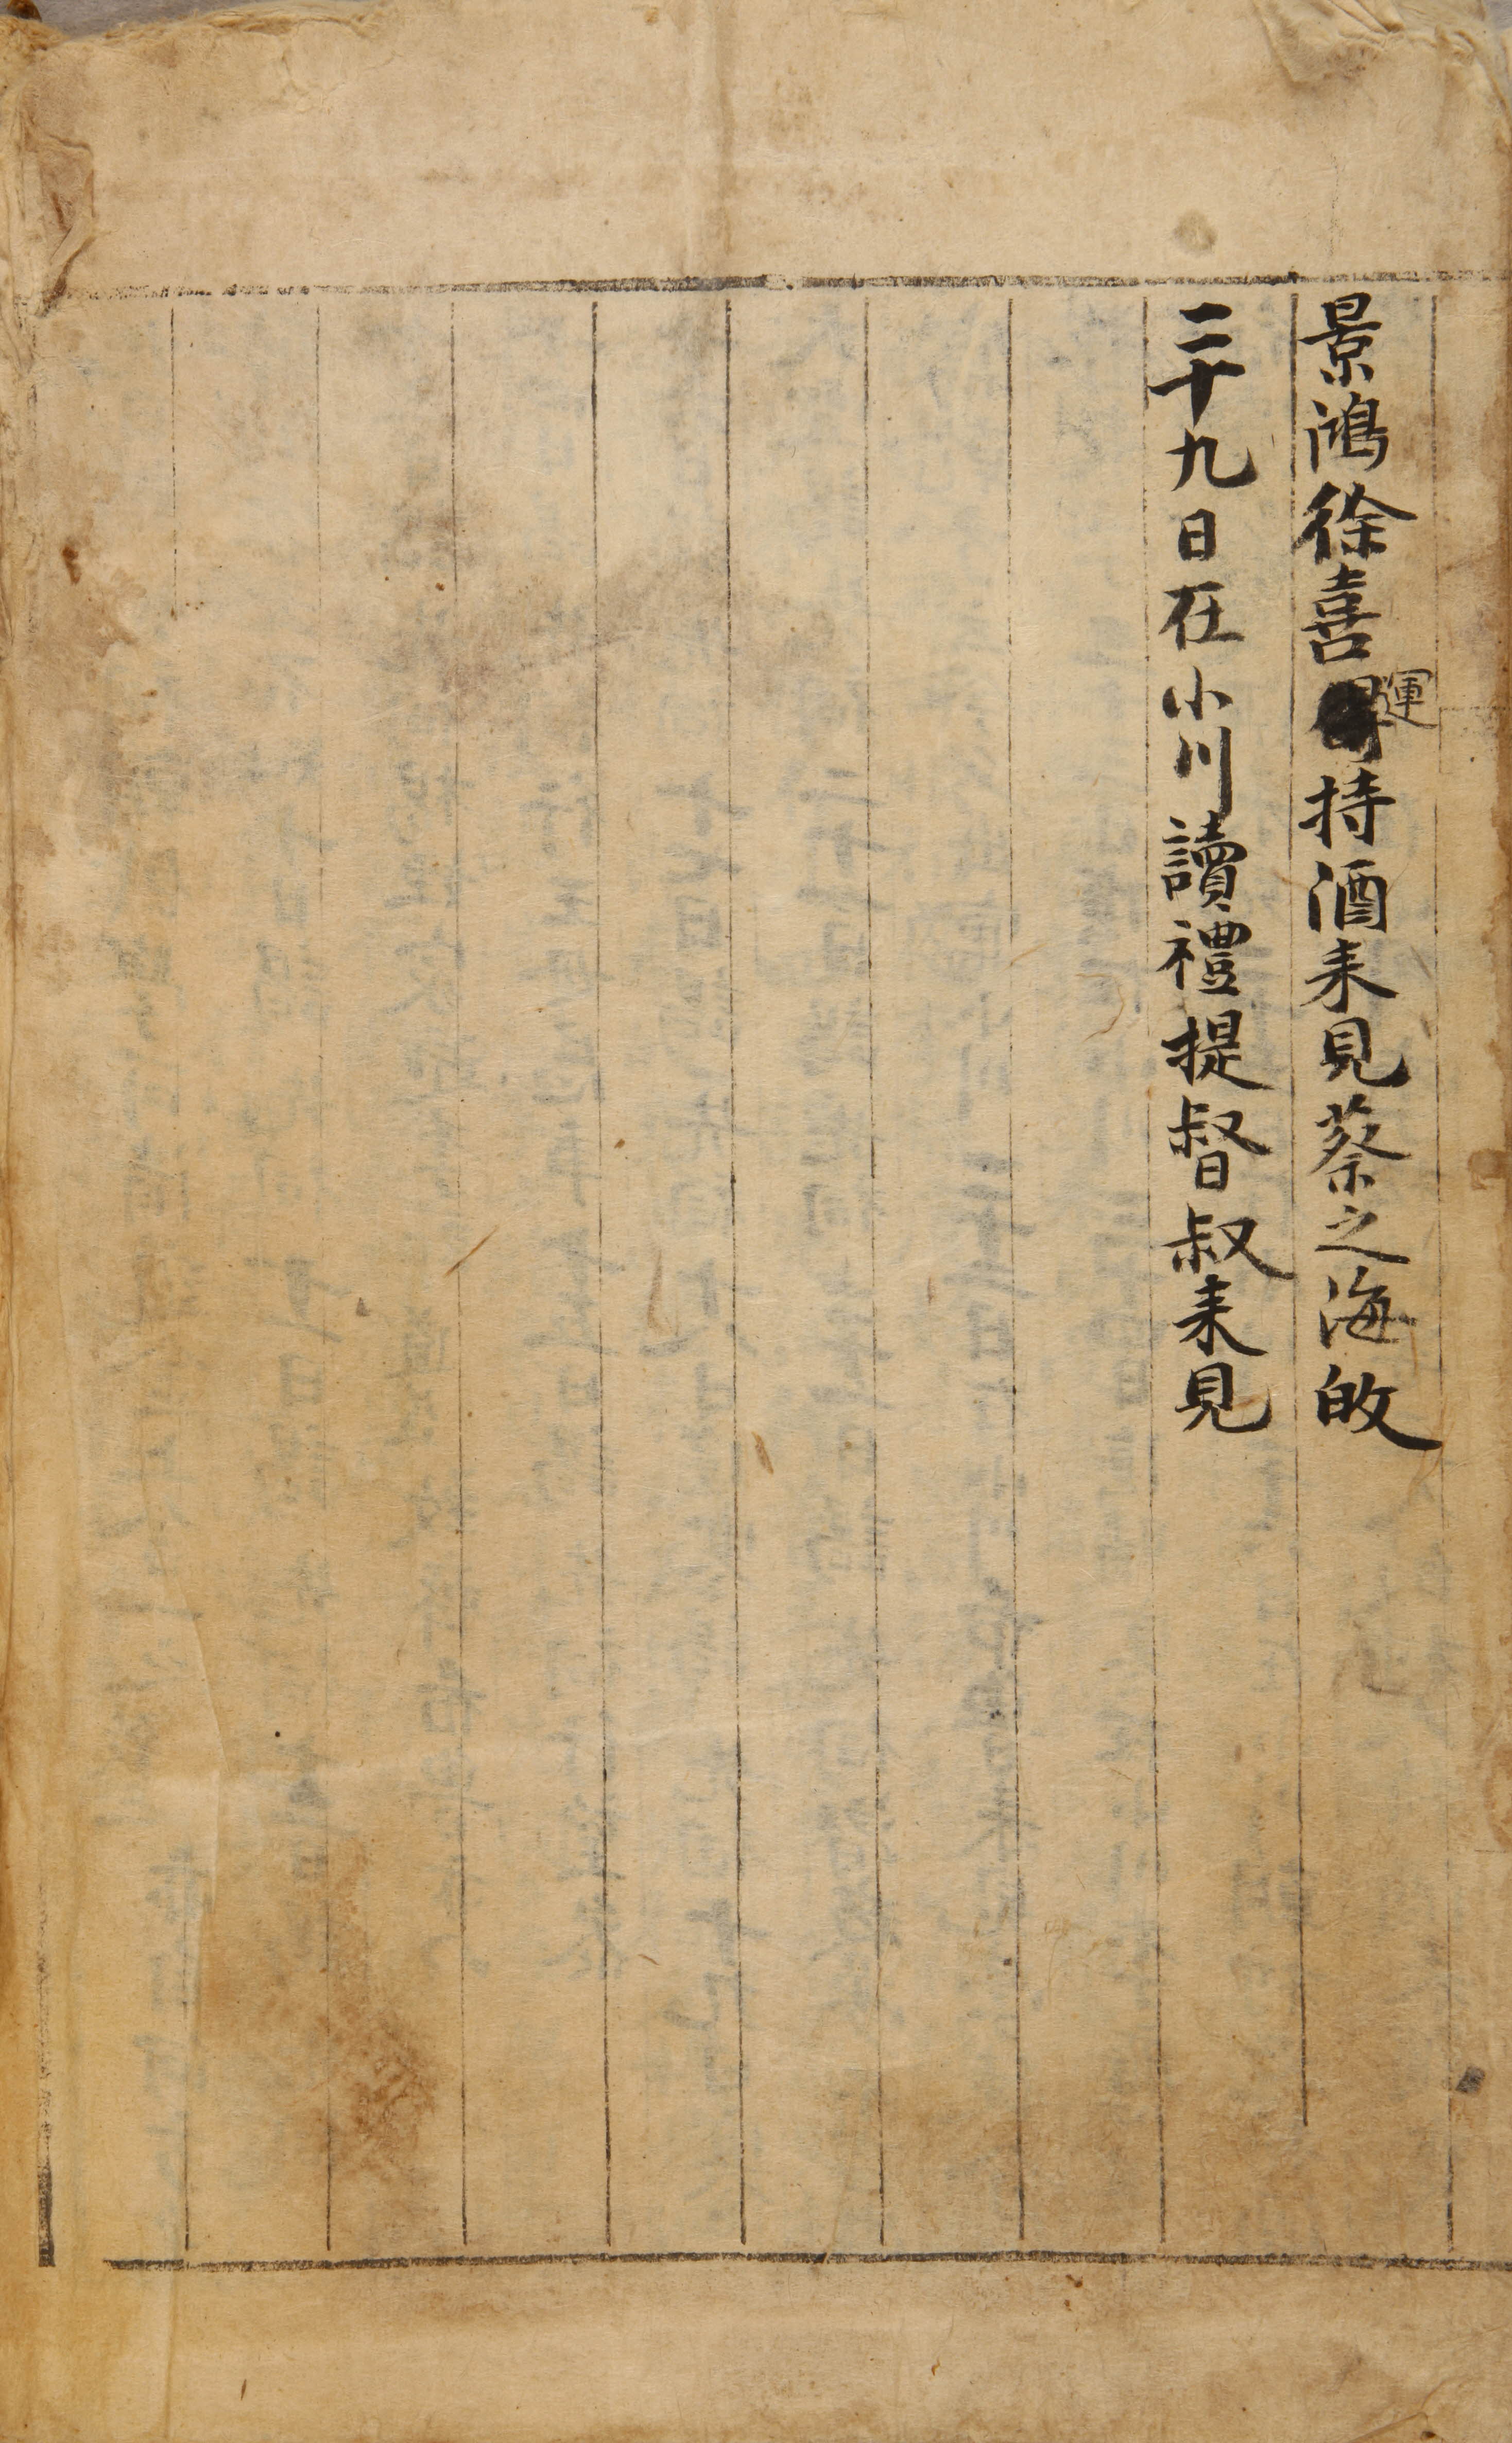 景鴻徐喜運持酒来見蔡之海啟
二十九日在小川讀禮提督叔来見